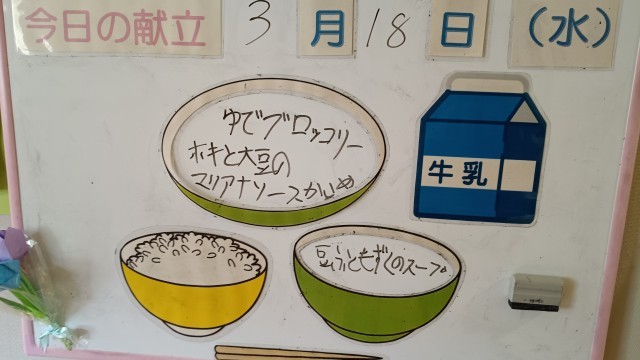 今日の献立 3月18日(水)
ゆでブロッコリー
ホキと大豆の
マリアナソースがらめ
牛乳
豆ふともずくのスープ